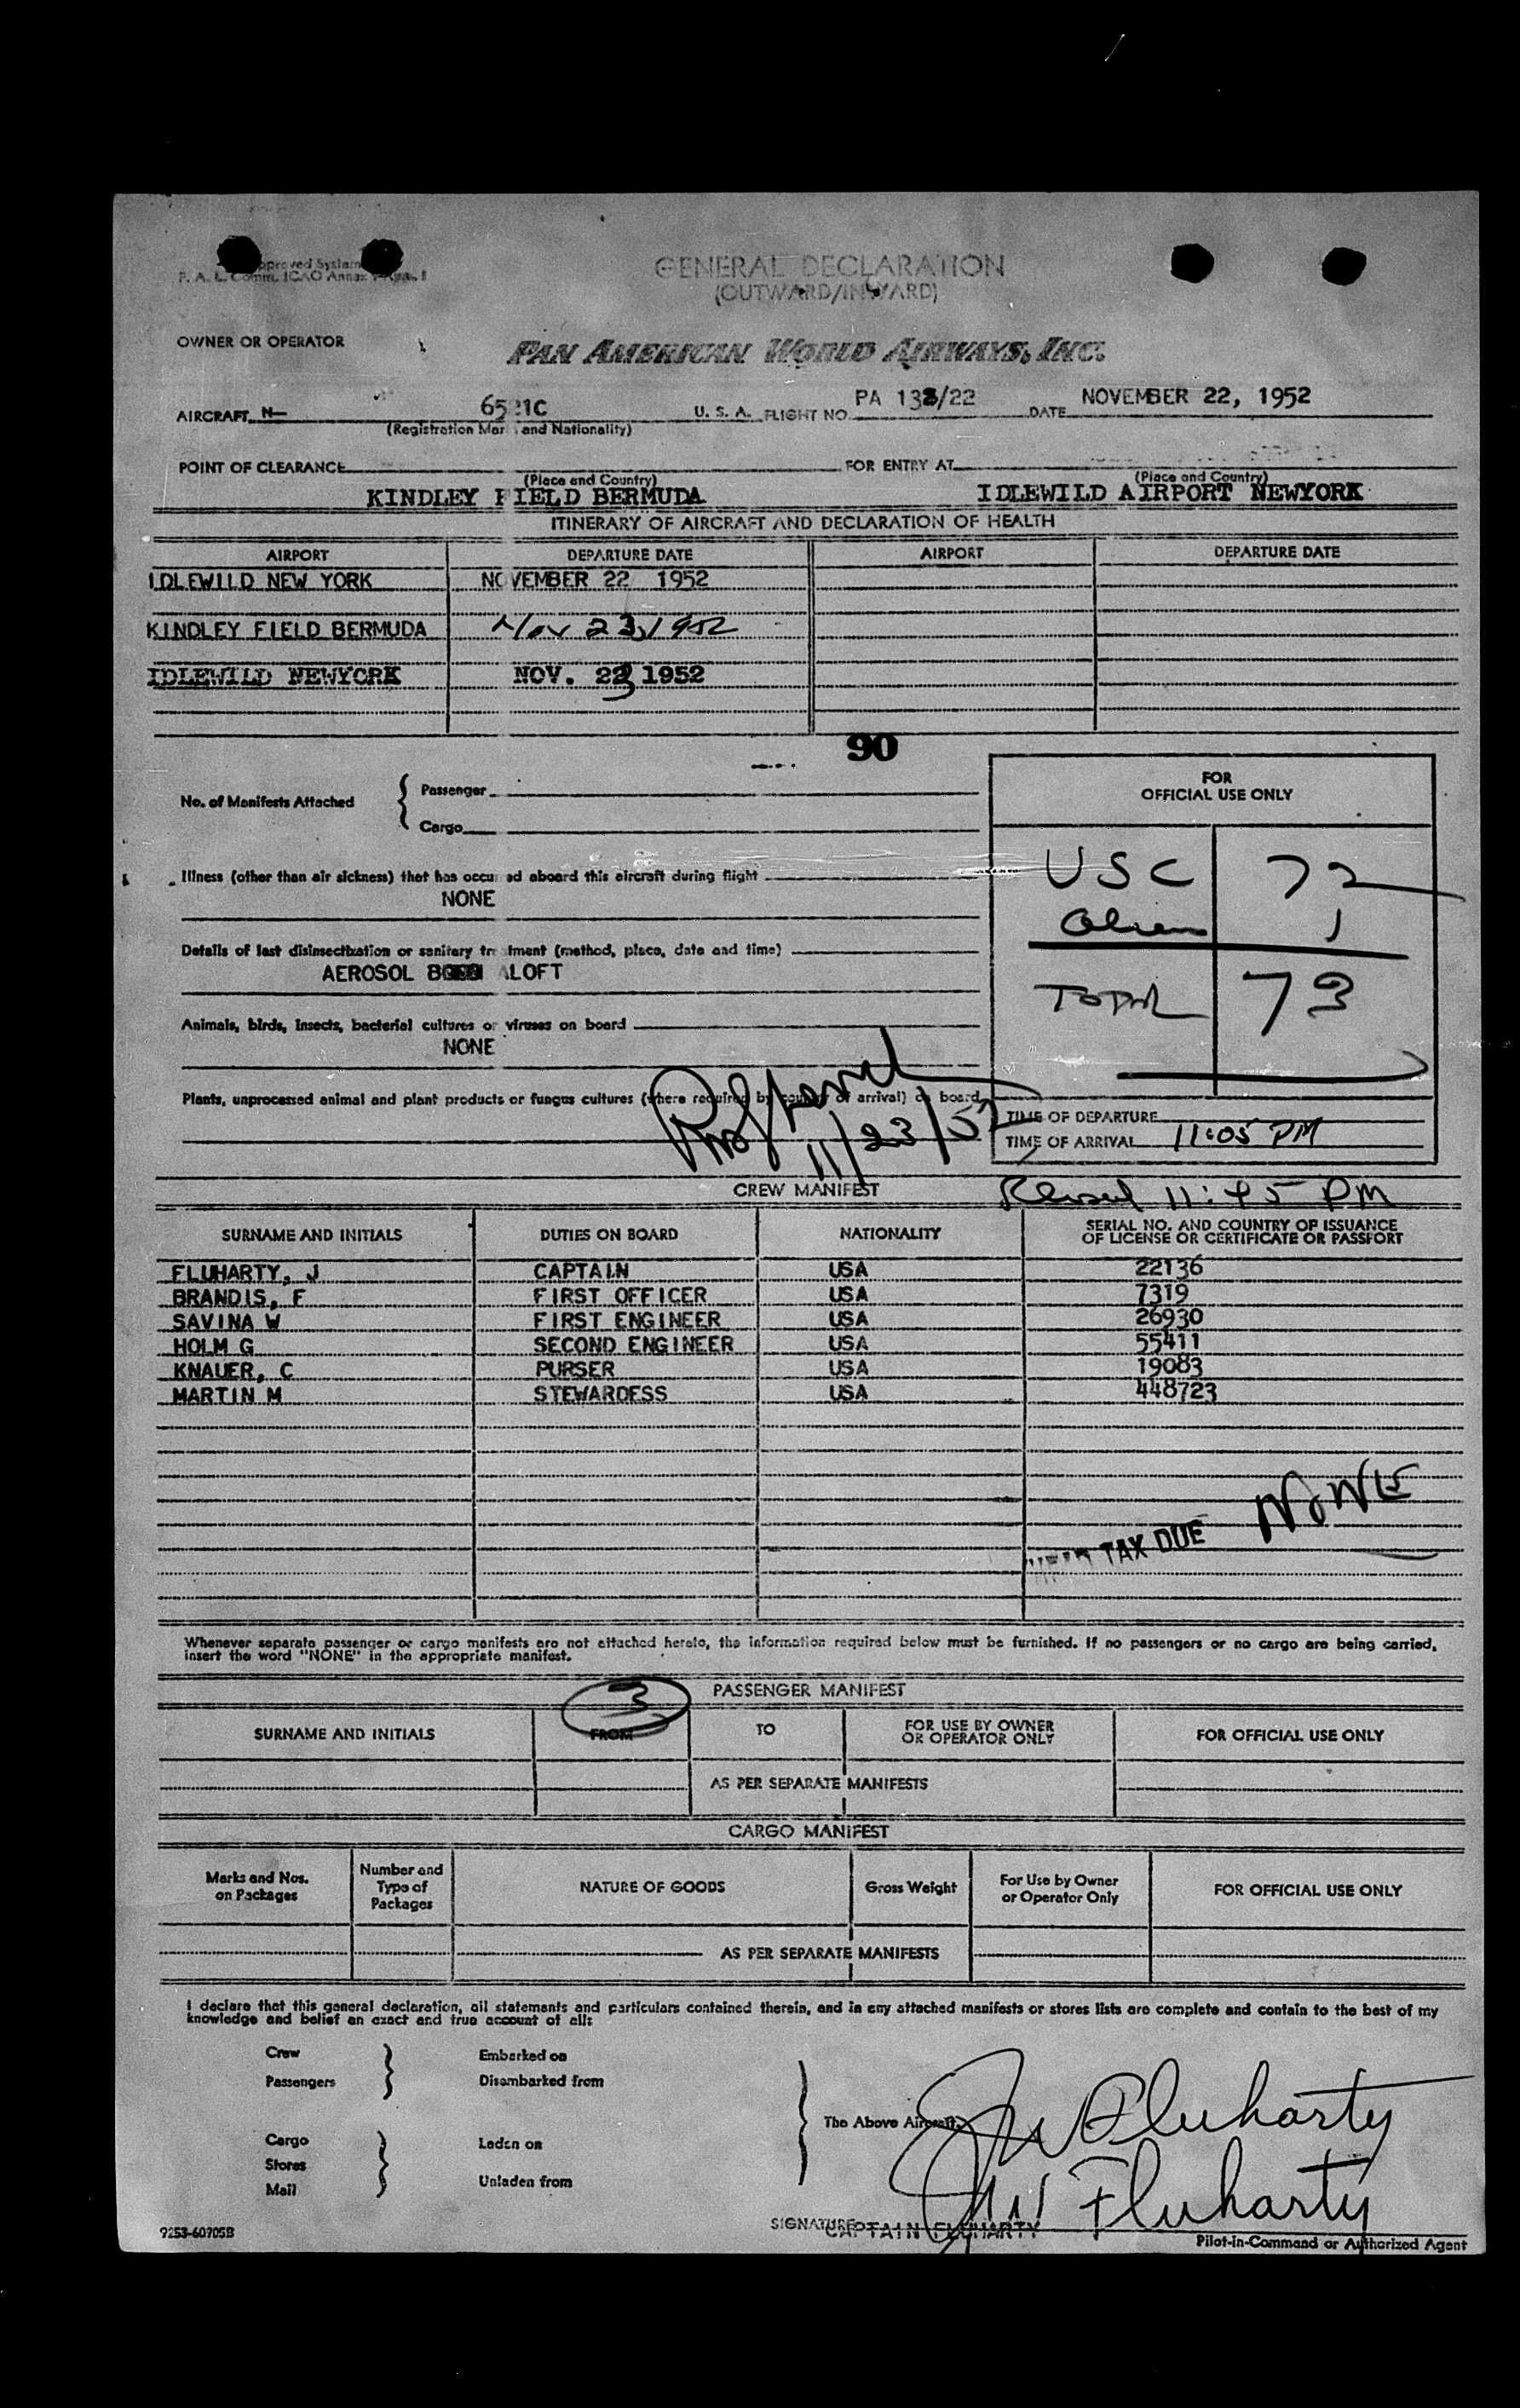 Approved System
F. A. L. Comm. ICAO Annex
GENERAL DECLARATION
(OUTWARD/INWARD)
OWNER OR OPERATOR PAN AMERICAN WORLD AIRWAYS, INC.
AIRCRAFT N- 6521C U. S. A. FLIGHT NO. PA 138/22 DATE NOVEMBER 22, 1952
(Registration Marks and Nationality)
POINT OF CLEARANCE FOR ENTRY AT
(Place and Country) (Place and Country)
KINDLEY FIELD BERMUDA IDLEWILD AIRPORT NEWYORK
ITINERARY OF AIRCRAFT AND DECLARATION OF HEALTH
AIRPORT DEPARTURE DATE AIRPORT DEPARTURE DATE
IDLEWILD NEW YORK NOVEMBER 22 1952
KINDLEY FIELD BERMUDA Nov 23, 1952
IDLEWILD NEWYORK NOV. 23 1952
90
No. of Manifests Attached { Passenger
Cargo
FOR
OFFICIAL USE ONLY
USC 72
Alien 1
TOTAL 73
Illness (other than air sickness) that has occurred aboard this aircraft during flight
NONE
Details of last disinsectization or sanitary treatment (method, place, date and time)
AEROSOL ALOFT
Animals, birds, insects, bacterial cultures or viruses on board
NONE
Plants, unprocessed animal and plant products or fungus cultures (where required by country of arrival) on board
11/23/52
TIME OF DEPARTURE
TIME OF ARRIVAL 11:05 PM
CREW MANIFEST 11:45 PM
SURNAME AND INITIALS DUTIES ON BOARD NATIONALITY SERIAL NO. AND COUNTRY OF ISSUANCE
OF LICENSE OR CERTIFICATE OR PASSPORT
FLUHARTY, J CAPTAIN USA 22136
BRANDIS, F FIRST OFFICER USA 7319
SAVINA W FIRST ENGINEER USA 26930
HOLM G SECOND ENGINEER USA 55411
KNAUER, C PURSER USA 19083
MARTIN M STEWARDESS USA 448723
TAX DUE NONE
Whenever separate passenger or cargo manifests are not attached hereto, the information required below must be furnished. If no passengers or no cargo are being carried,
insert the word "NONE" in the appropriate manifest.
3
PASSENGER MANIFEST
SURNAME AND INITIALS FROM TO FOR USE BY OWNER
OR OPERATOR ONLY FOR OFFICIAL USE ONLY
AS PER SEPARATE MANIFESTS
CARGO MANIFEST
Marks and Nos.
on Packages Number and
Type of
Packages NATURE OF GOODS Gross Weight For Use by Owner
or Operator Only FOR OFFICIAL USE ONLY
AS PER SEPARATE MANIFESTS
I declare that this general declaration, all statements and particulars contained therein, and in any attached manifests or stores lists are complete and contain to the best of my
knowledge and belief an exact and true account of all:
Crew Embarked on
Passengers Disembarked from
The Above Aircraft.
Cargo Laden on
Stores
Mail Unladen from
JW Fluharty
JW Fluharty
SIGNATURE CAPTAIN FLUHARTY
9253-60705B
Pilot-in-Command or Authorized Agent